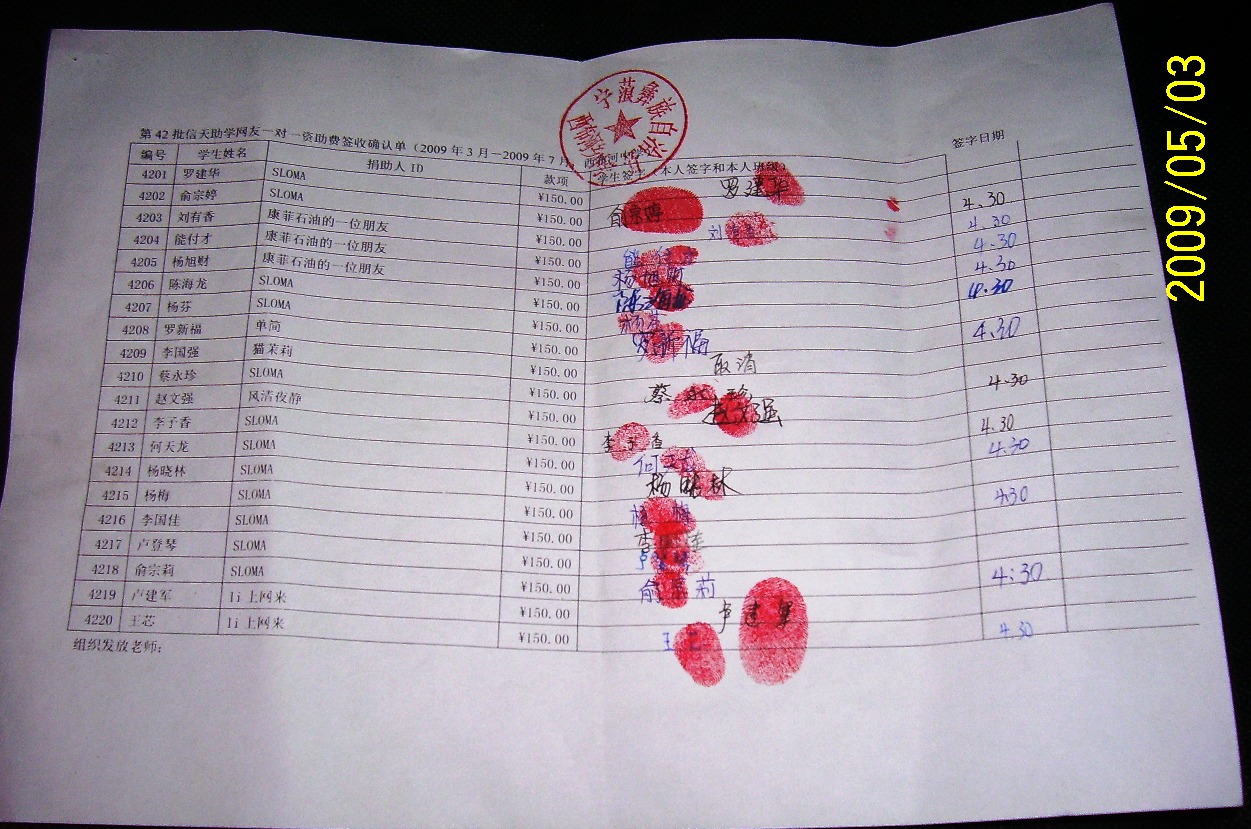 第 42 批信天助学网友一对一资助费签收确认单（2009 年 3 月—2009 年 7 月，西
编号 学生姓名 捐助人 ID 款项 学生签字（本人签字和本人班级） 签字日期
4201 罗建华 SLOMA ¥150.00 罗建华 4.30
4202 俞宗婷 SLOMA ¥150.00 俞宗婷 4.30
4203 刘有香 康菲石油的一位朋友 ¥150.00 刘有香 4.30
4204 能付才 康菲石油的一位朋友 ¥150.00 4.30
4205 杨旭财 康菲石油的一位朋友 ¥150.00 杨旭财 4.30
4206 陈海龙 SLOMA ¥150.00
4207 杨芬 SLOMA ¥150.00 4.30
4208 罗新福 单简 ¥150.00 罗新福
4209 李国强 猫茉莉 ¥150.00 取消
4210 蔡永珍 SLOMA ¥150.00 蔡永珍 4.30
4211 赵文强 风清夜静 ¥150.00 赵文强
4212 李子香 SLOMA ¥150.00 李子香 4.30
4213 何天龙 SLOMA ¥150.00 何天龙 4.30
4214 杨晓林 SLOMA ¥150.00 杨晓林
4215 杨梅 SLOMA ¥150.00 杨梅 4.30
4216 李国佳 SLOMA ¥150.00 李国佳
4217 卢登琴 SLOMA ¥150.00
4218 俞宗莉 SLOMA ¥150.00 俞宗莉 4:30
4219 卢建军 li 上网来 ¥150.00 卢建军
4220 王芯 li 上网来 ¥150.00 王芯 4.30
组织发放老师：
宁蒗彝族自
2009/05/03